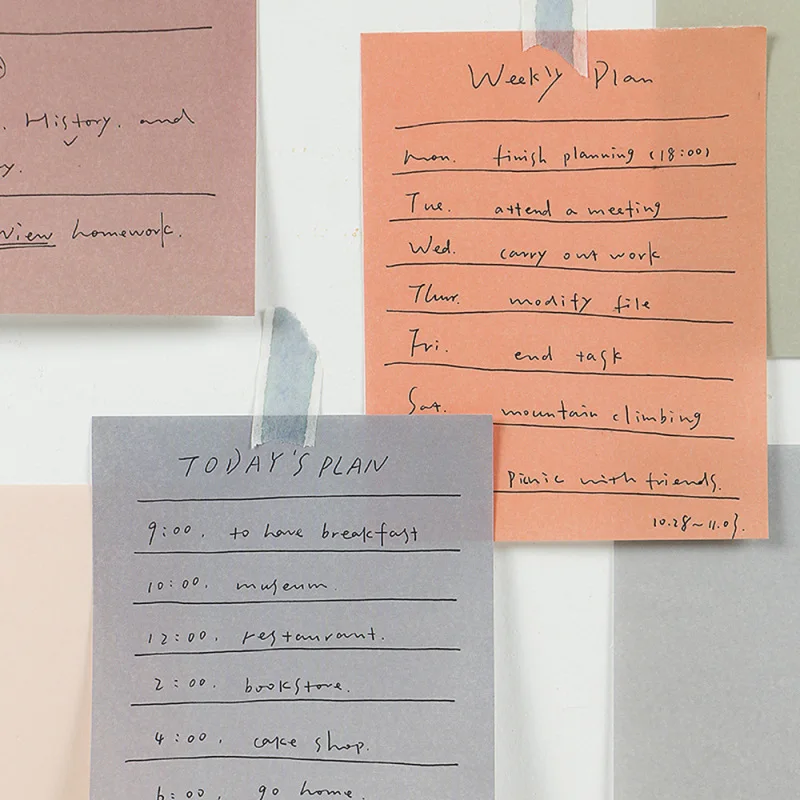 . History. and
y.
view homework.
Weekly Plan
Mon. finish planning (18:00)
Tue. attend a meeting
Wed. carry out work
Thur. modify file
Fri. end task
Sat. mountain climbing
Picnic with friends.
10.28~11.03.
TODAY'S PLAN
9:00. to have breakfast
10:00. museum.
12:00. restaurant.
2:00. bookstore.
4:00. cake shop.
6:00. go home.